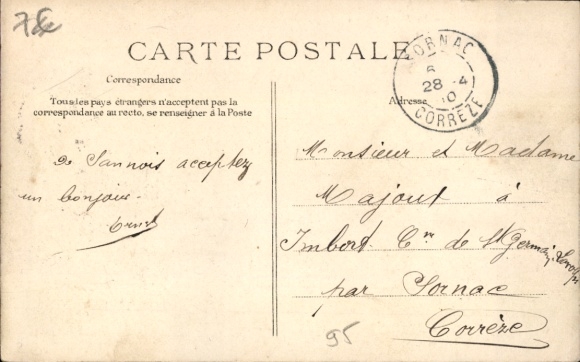 78
CARTE POSTALE
Correspondance
Tous les pays étrangers n'acceptent pas la
correspondance au recto, se renseigner à la Poste
de Sannois acceptez
un bonjour.
Adresse
SORNAC
28 -4
10
CORRÈZE
Monsieur et Madame
Majout à
Imbert Cne de St Germain-Lavolps
par Sornac
Corrèze
95